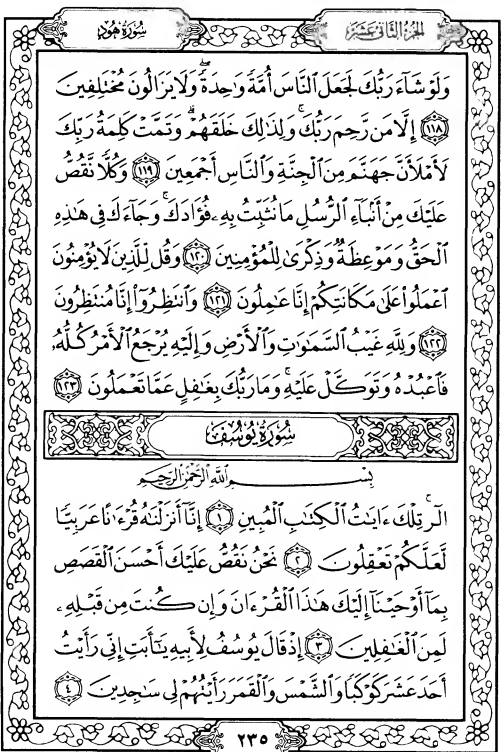 الجزء الثاني عشر
سورة هود
وَلَوْ شَآءَ رَبُّكَ لَجَعَلَ ٱلنَّاسَ أُمَّةً وَٰحِدَةً ۖ وَلَا يَزَالُونَ مُخْتَلِفِينَ
١١٨ إِلَّا مَن رَّحِمَ رَبُّكَ ۚ وَلِذَٰلِكَ خَلَقَهُمْ ۗ وَتَمَّتْ كَلِمَةُ رَبِّكَ
لَأَمْلَأَنَّ جَهَنَّمَ مِنَ ٱلْجِنَّةِ وَٱلنَّاسِ أَجْمَعِينَ ١١٩ وَكُلًّا نَّقُصُّ
عَلَيْكَ مِنْ أَنۢبَآءِ ٱلرُّسُلِ مَا نُثَبِّتُ بِهِۦ فُؤَادَكَ ۚ وَجَآءَكَ فِى هَٰذِهِ
ٱلْحَقُّ وَمَوْعِظَةٌ وَذِكْرَىٰ لِلْمُؤْمِنِينَ ١٢٠ وَقُل لِّلَّذِينَ لَا يُؤْمِنُونَ
ٱعْمَلُوا۟ عَلَىٰ مَكَانَتِكُمْ إِنَّا عَٰمِلُونَ ١٢١ وَٱنتَظِرُوٓا۟ إِنَّا مُنتَظِرُونَ
١٢٢ وَلِلَّهِ غَيْبُ ٱلسَّمَٰوَٰتِ وَٱلْأَرْضِ وَإِلَيْهِ يُرْجَعُ ٱلْأَمْرُ كُلُّهُۥ
فَٱعْبُدْهُ وَتَوَكَّلْ عَلَيْهِ ۚ وَمَا رَبُّكَ بِغَٰفِلٍ عَمَّا تَعْمَلُونَ ١٢٣
سُورَةُ يُوسُفَ
بِسْمِ ٱللَّهِ ٱلرَّحْمَٰنِ ٱلرَّحِيمِ
الٓر ۚ تِلْكَ ءَايَٰتُ ٱلْكِتَٰبِ ٱلْمُبِينِ ١ إِنَّآ أَنزَلْنَٰهُ قُرْءَٰنًا عَرَبِيًّا
لَّعَلَّكُمْ تَعْقِلُونَ ٢ نَحْنُ نَقُصُّ عَلَيْكَ أَحْسَنَ ٱلْقَصَصِ
بِمَآ أَوْحَيْنَآ إِلَيْكَ هَٰذَا ٱلْقُرْءَانَ وَإِن كُنتَ مِن قَبْلِهِۦ
لَمِنَ ٱلْغَٰفِلِينَ ٣ إِذْ قَالَ يُوسُفُ لِأَبِيهِ يَٰٓأَبَتِ إِنِّى رَأَيْتُ
أَحَدَ عَشَرَ كَوْكَبًا وَٱلشَّمْسَ وَٱلْقَمَرَ رَأَيْتُهُمْ لِى سَٰجِدِينَ ٤
٢٣٥